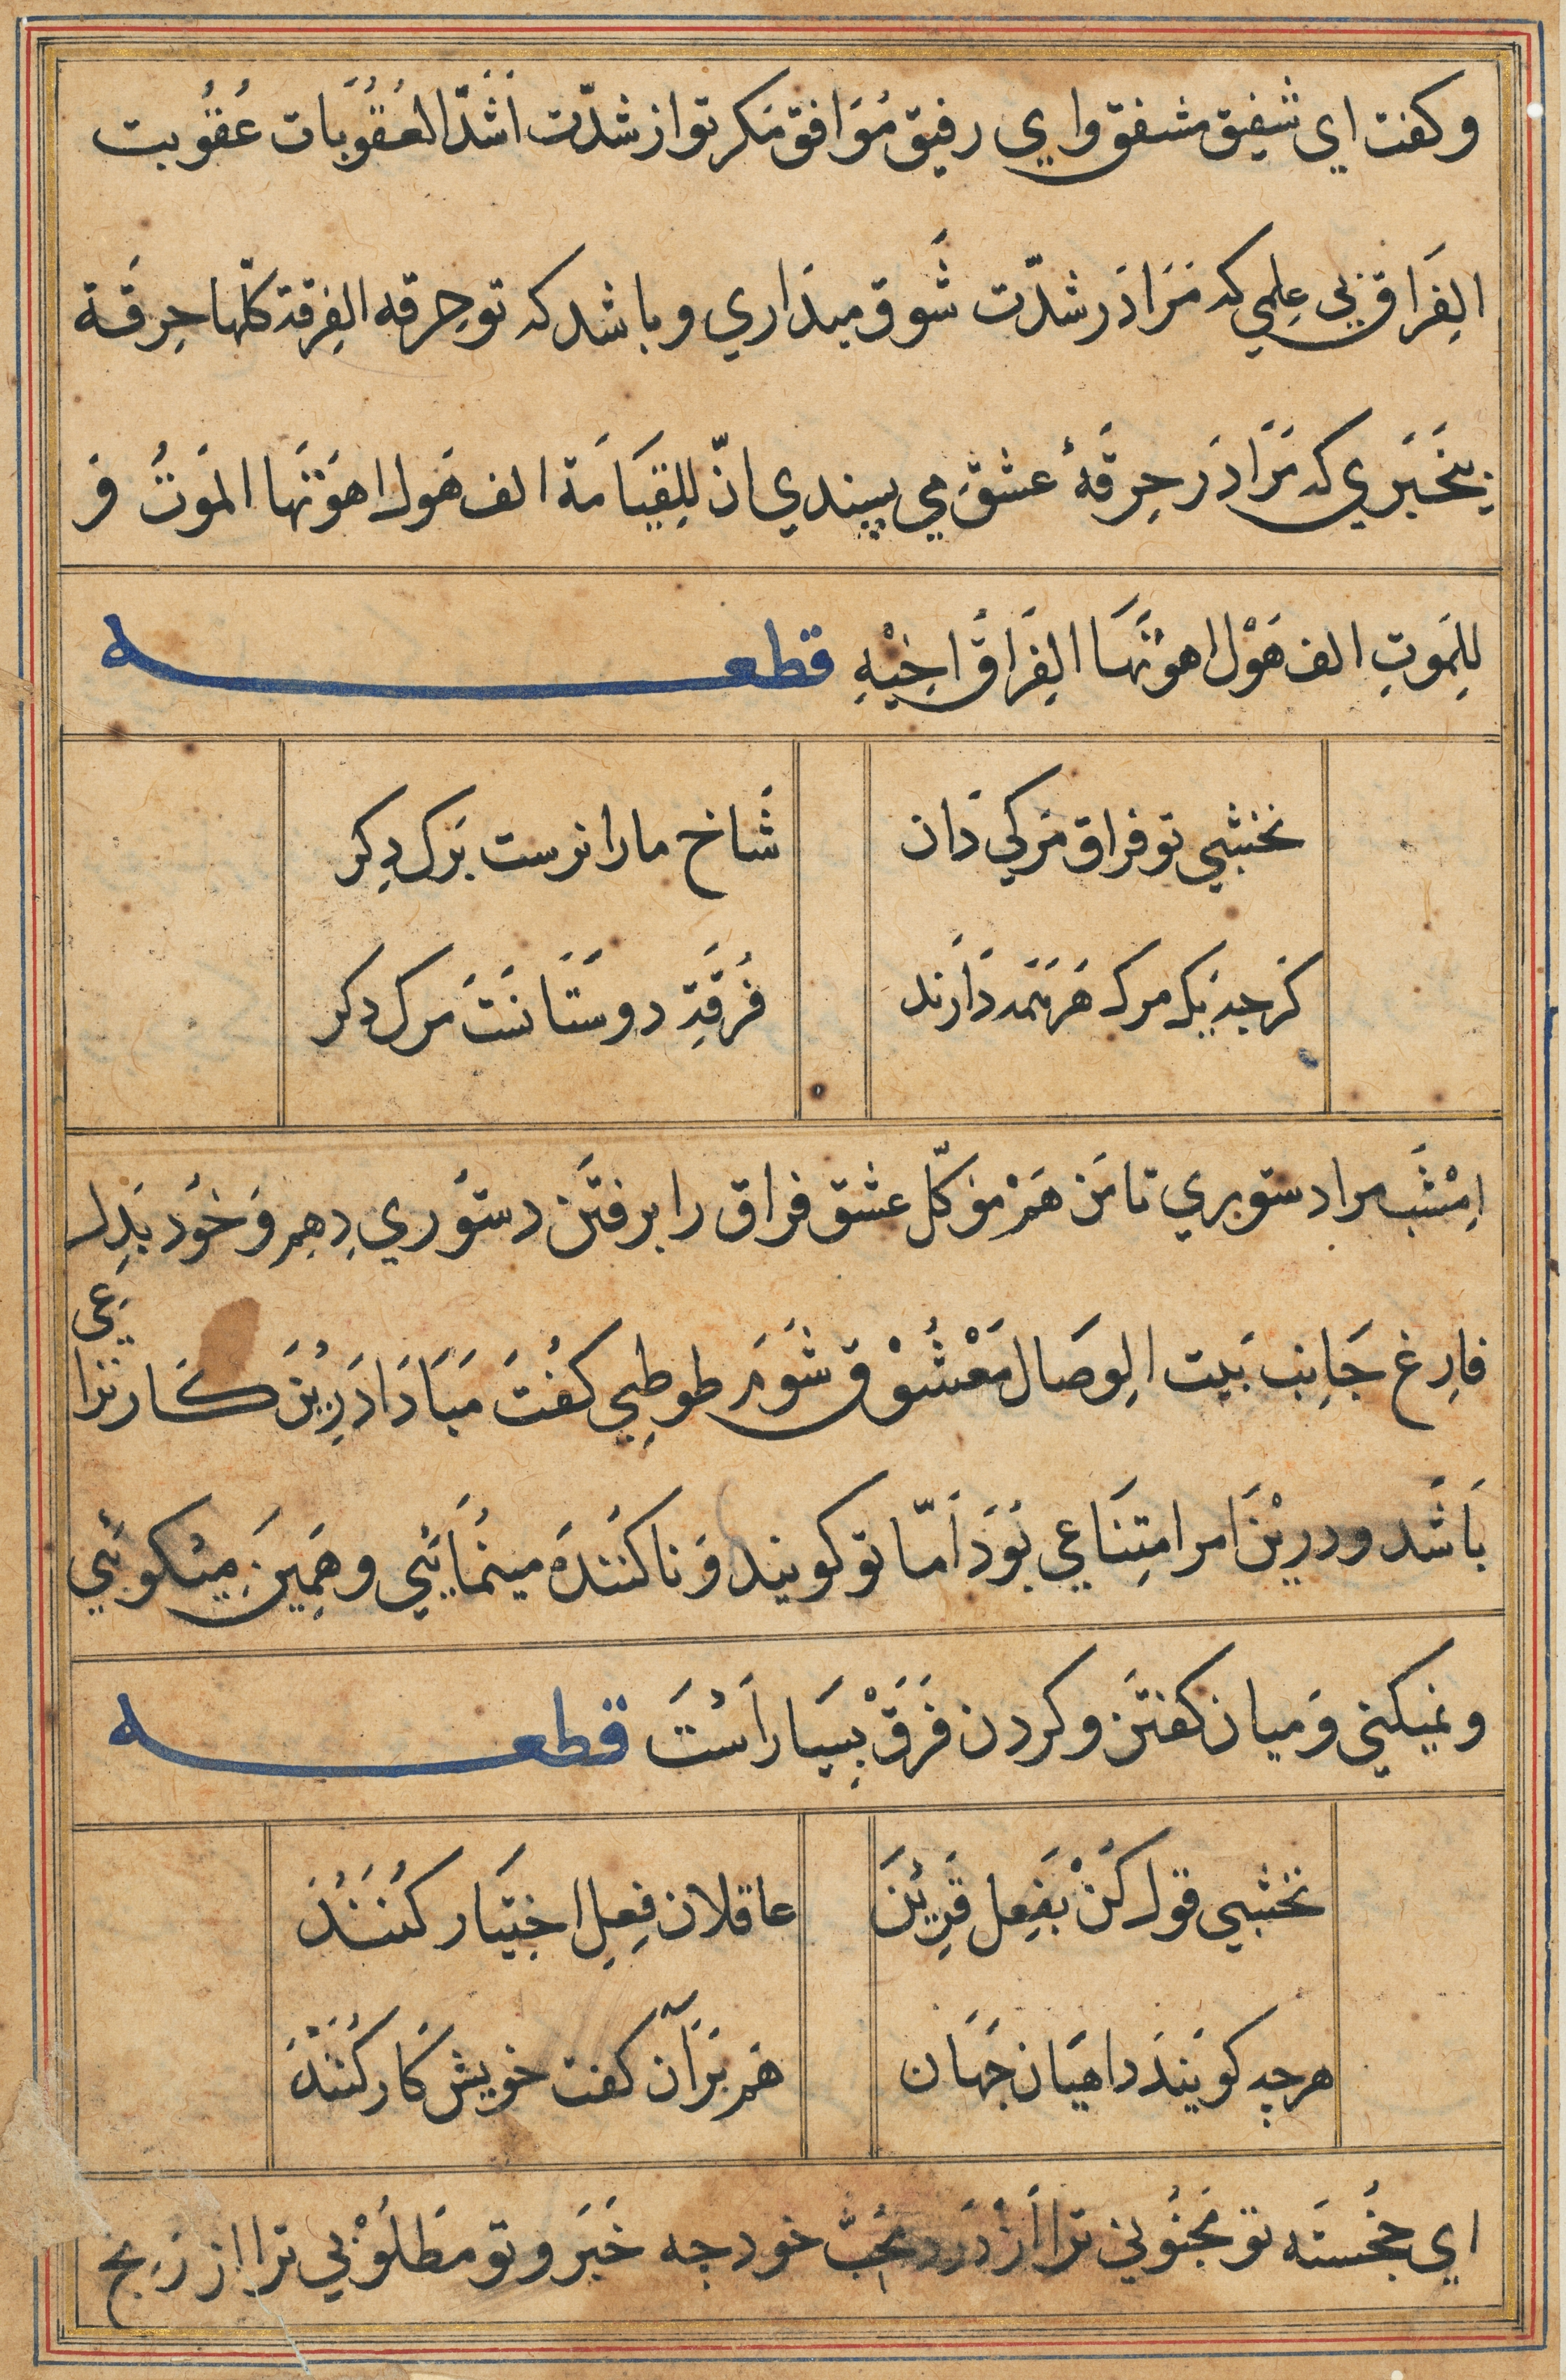 وكفت اي شفيق مشفق واي رفيق مُوَافق مَكر تو از شدّت اَشَدّ العُقُوبَات عُقُوبت
الفِرَاق بي عِلمي كه مَرَا دَر شدّت شَوق ميدَاري و باشد كه تو حِرقه الفِرقة كلّها حِرقَة
بيخَبَري كه مَرَا دَر حِرقَهٔ عشق مي پسندي انّ للِقيَامَة الف هَول اهوَنَهَا المَوتُ وَ
للِمَوتِ الف هَوْل اهوَنَهَا الفِرَاق اخِيْهِ قطعه
نخشبي تو فراق مَركي دَان
شَاخ ما را نرست بَرك دِكر
كَرچه يَك مرك هَر هَمَه دَارند
فُرقَتِ دوستَانَستَ مرك دكر
امِشَب مرا دستوري تا مَن هَمْ مؤكّل عشق فراق را برفتَن دستوُري دِهم وَ خوُد بَدِل
فارِغ جَانِب بَيت الوِصَال مَعْشُوْق شَوَم طوطِي كفُتَ مَبَادَا دَرِينَ كَار ترا
عي
بَاشَد و درينَ امر امتِنَاعي بَوَد اَمّا تو كويند وَ ناكنَندَه مينمَائَي و هَمِينَ ميكوئَي
و نميكني وَ ميان كفتَن و كردن فَرَقْ بِسيَار اَستَ قطعه
نخشبي قول كَنْ بفَعِل قَرِينَ
عاقلان فِعِل اختيَار كُنَندُ
هرچه كويَندَ داهيَان جَهَان
هَم بَرآن كفت خويش كَار كُنَنْدَ
اي خجُستَه تو مجَنوُني ترا اَز دَرد مُحِبّ خود چه خَبَر و تو مَطلُوْبي ترا از رَنج